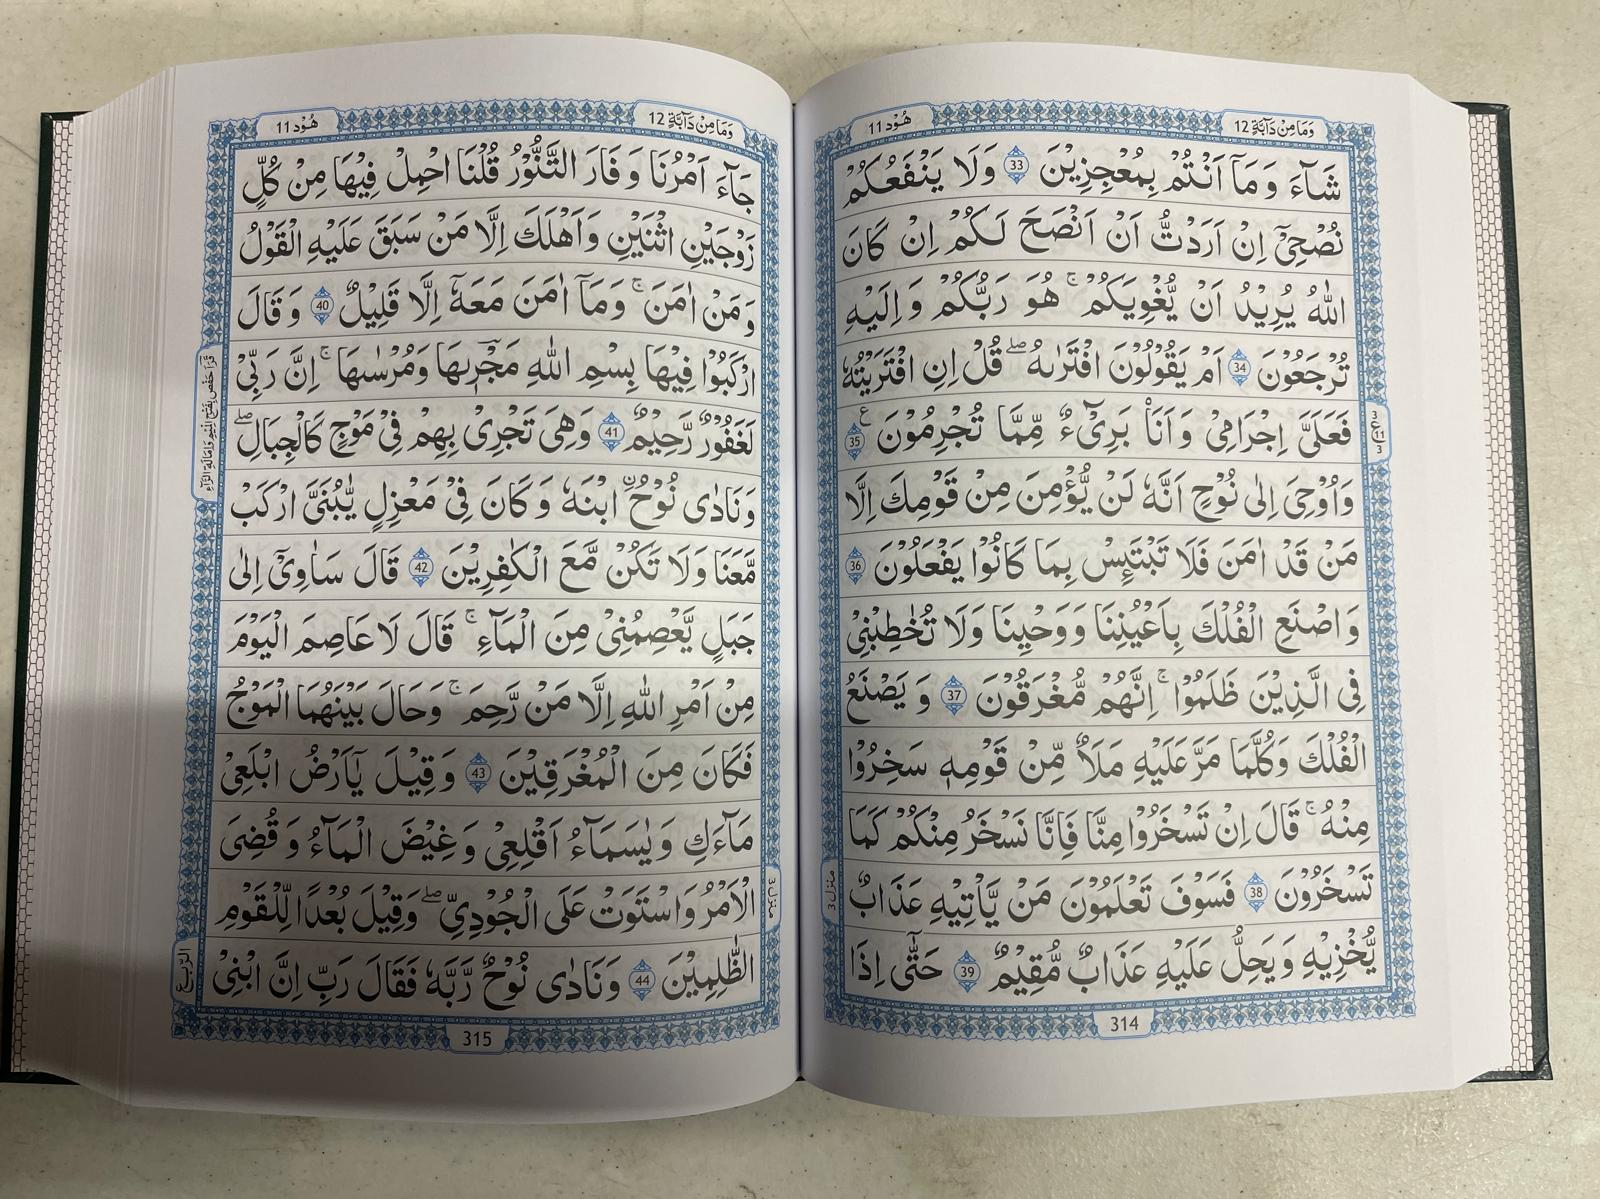 وَمَا مِنْ دَآبَّةٍ 12
هُوْد 11
شَآءَ وَمَاۤ اَنْتُمْ بِمُعْجِزِيْنَ 33 وَلَا يَنْفَعُكُمْ
نُصْحِيْۤ اِنْ اَرَدْتُّ اَنْ اَنْصَحَ لَكُمْ اِنْ كَانَ
اللّٰهُ يُرِيْدُ اَنْ يُّغْوِيَكُمْ ۚ هُوَ رَبُّكُمْ وَاِلَيْهِ
تُرْجَعُوْنَ 34 اَمْ يَقُوْلُوْنَ افْتَرٰىهُ ۖ قُلْ اِنِ افْتَرَيْتُهٗ
فَعَلَيَّ اِجْرَامِيْ وَاَنَا۠ بَرِيْٓءٌ مِّمَّا تُجْرِمُوْنَ ع 35
وَاُوْحِيَ اِلٰى نُوْحٍ اَنَّهٗ لَنْ يُّؤْمِنَ مِنْ قَوْمِكَ اِلَّا
مَنْ قَدْ اٰمَنَ فَلَا تَبْتَئِسْ بِمَا كَانُوْا يَفْعَلُوْنَ 36
وَاصْنَعِ الْفُلْكَ بِاَعْيُنِنَا وَوَحْيِنَا وَلَا تُخَاطِبْنِيْ
فِي الَّذِيْنَ ظَلَمُوْا ۚ اِنَّهُمْ مُّغْرَقُوْنَ 37 وَيَصْنَعُ
الْفُلْكَ وَكُلَّمَا مَرَّ عَلَيْهِ مَلَاٌ مِّنْ قَوْمِهٖ سَخِرُوْا
مِنْهُ ۚ قَالَ اِنْ تَسْخَرُوْا مِنَّا فَاِنَّا نَسْخَرُ مِنْكُمْ كَمَا
تَسْخَرُوْنَ 38 فَسَوْفَ تَعْلَمُوْنَ مَنْ يَّاْتِيْهِ عَذَابٌ
يُّخْزِيْهِ وَيَحِلُّ عَلَيْهِ عَذَابٌ مُّقِيْمٌ 39 حَتّٰٓى اِذَا
3
ع 11
3
منزل 3
314
وَمَا مِنْ دَآبَّةٍ 12
هُوْد 11
جَآءَ اَمْرُنَا وَفَارَ التَّنُّوْرُ قُلْنَا احْمِلْ فِيْهَا مِنْ كُلٍّ
زَوْجَيْنِ اثْنَيْنِ وَاَهْلَكَ اِلَّا مَنْ سَبَقَ عَلَيْهِ الْقَوْلُ
وَمَنْ اٰمَنَ ۚ وَمَاۤ اٰمَنَ مَعَهٗۤ اِلَّا قَلِيْلٌ 40 وَقَالَ
ارْكَبُوْا فِيْهَا بِسْمِ اللّٰهِ مَجْؔرٖىهَا وَمُرْسٰىهَا ۚ اِنَّ رَبِّيْ
لَغَفُوْرٌ رَّحِيْمٌ 41 وَهِيَ تَجْرِيْ بِهِمْ فِيْ مَوْجٍ كَالْجِبَالِ ۖ
وَنَادٰى نُوْحُ ۨ ابْنَهٗ وَكَانَ فِيْ مَعْزِلٍ يّٰبُنَيَّ ارْكَبْ
مَّعَنَا وَلَا تَكُنْ مَّعَ الْكٰفِرِيْنَ 42 قَالَ سَاٰوِيْۤ اِلٰى
جَبَلٍ يَّعْصِمُنِيْ مِنَ الْمَآءِ ۚ قَالَ لَا عَاصِمَ الْيَوْمَ
مِنْ اَمْرِ اللّٰهِ اِلَّا مَنْ رَّحِمَ ۚ وَحَالَ بَيْنَهُمَا الْمَوْجُ
فَكَانَ مِنَ الْمُغْرَقِيْنَ 43 وَقِيْلَ يٰۤاَرْضُ ابْلَعِيْ
مَآءَكِ وَيٰسَمَآءُ اَقْلِعِيْ وَغِيْضَ الْمَآءُ وَقُضِيَ
الْاَمْرُ وَاسْتَوَتْ عَلَى الْجُوْدِيِّ ۖ وَقِيْلَ بُعْدًا لِّلْقَوْمِ
الظّٰلِمِيْنَ 44 وَنَادٰى نُوْحٌ رَّبَّهٗ فَقَالَ رَبِّ اِنَّ ابْنِيْ
قَرَاَ حَفْص بِفَتْحِ الْمِيْمِ وَاِمَالَةِ الرَّآءِ
منزل 3
الربع
315